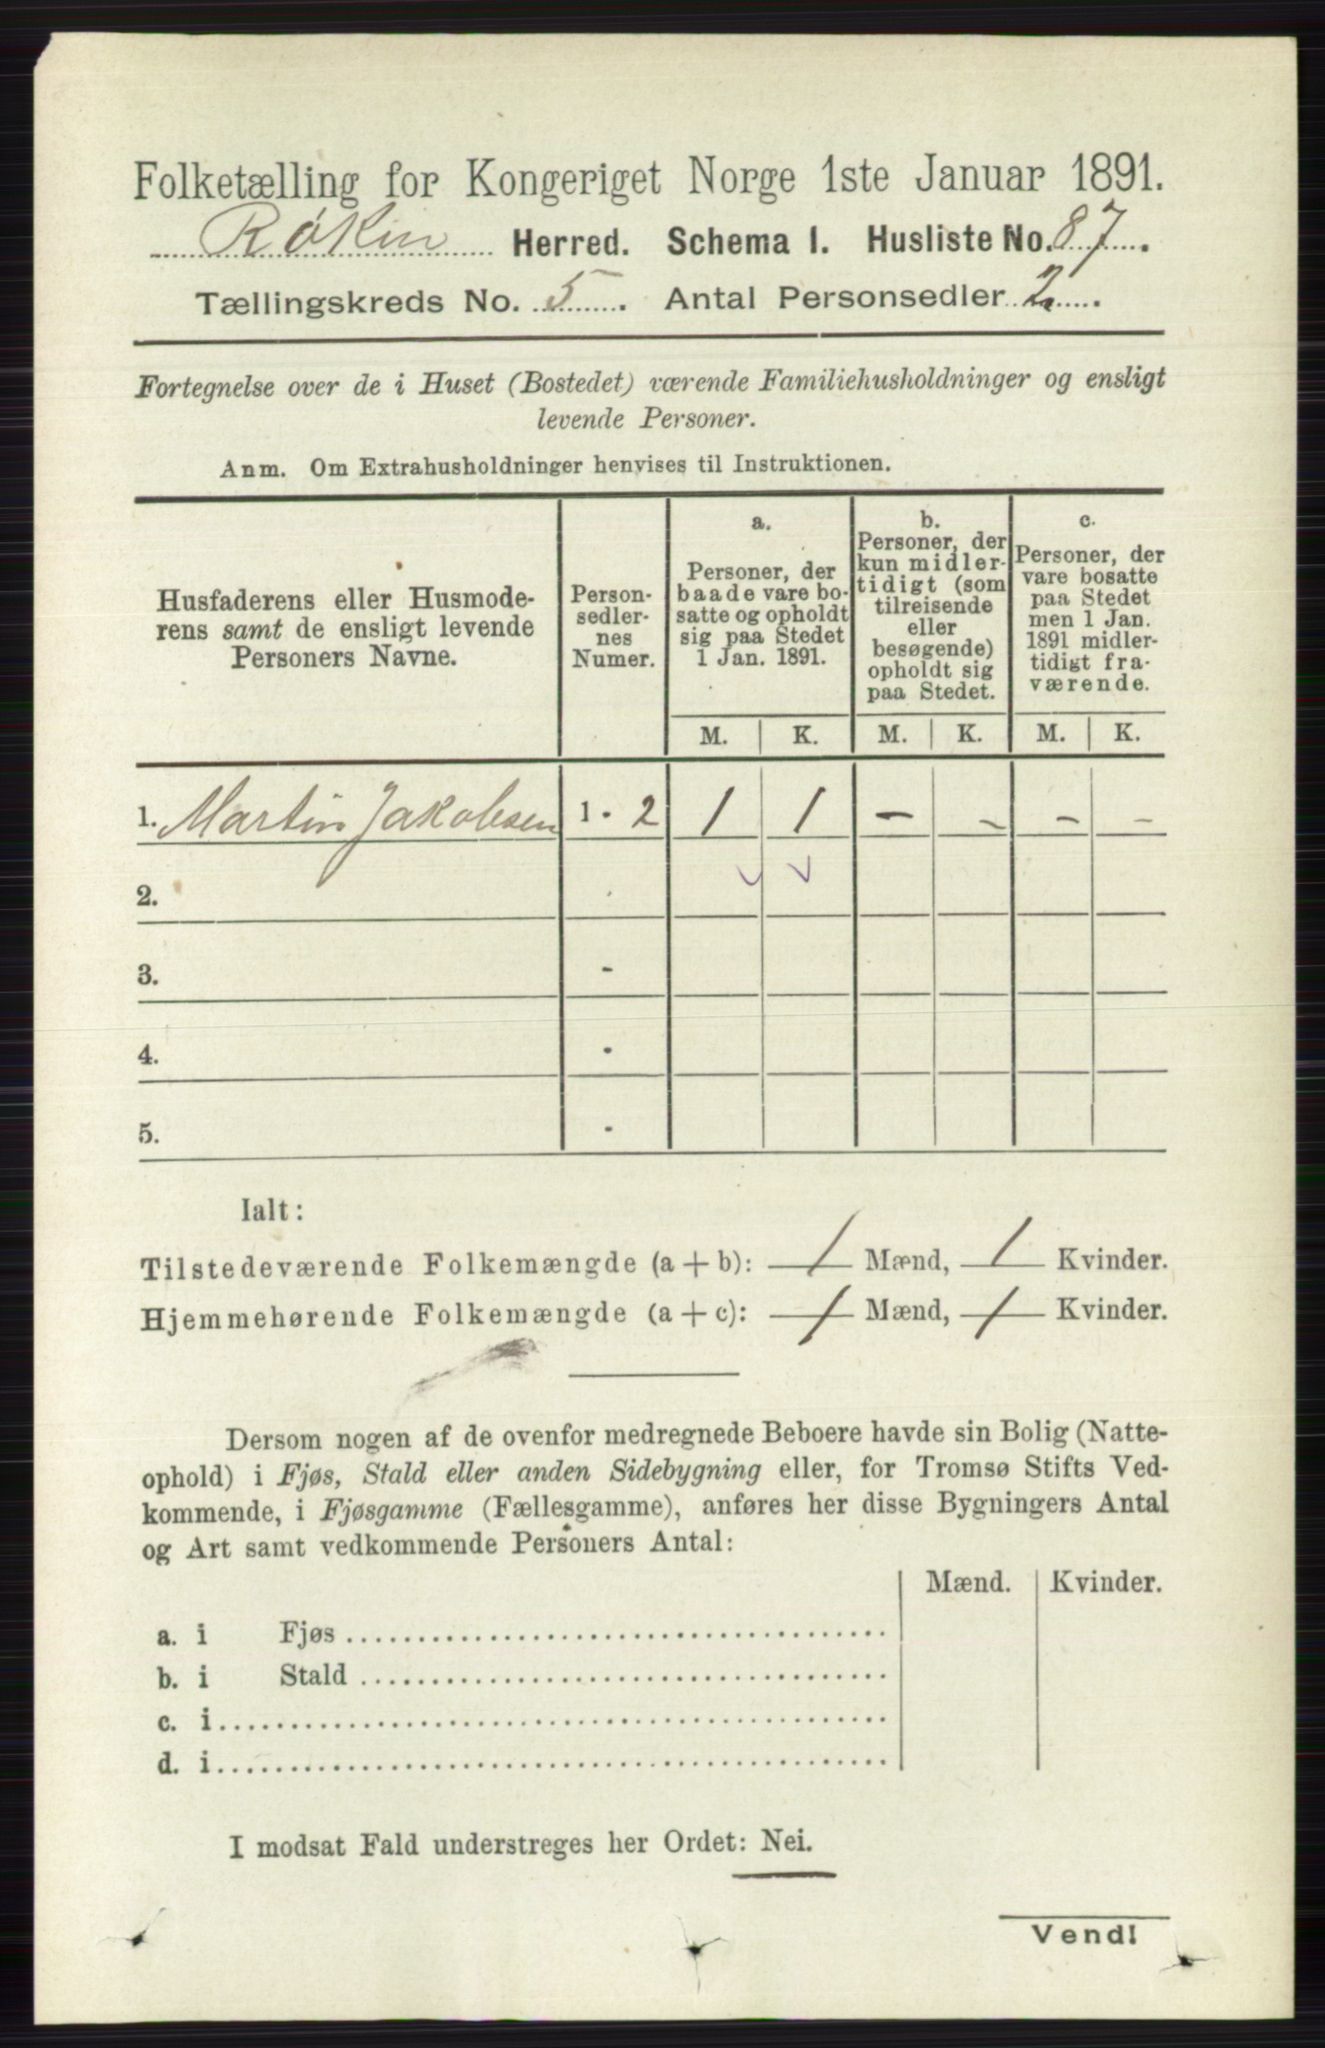 Folketælling for Kongeriget Norge 1ste Januar 1891.
Røkin Herred. Schema I. Husliste No. 87.
Tællingskreds No. 5. Antal Personsedler 2.
Fortegnelse over de i Huset (Bostedet) værende Familiehusholdninger og ensligt
levende Personer.
Anm. Om Extrahusholdninger henvises til Instruktionen.
Husfaderens eller Husmode-
rens samt de ensligt levende
Personers Navne.
Person-
sedler-
nes
Numer.
a.
Personer, der
baade vare bo-
satte og opholdt
sig paa Stedet
1 Jan. 1891.
b.
Personer, der
kun midler-
tidigt (som
tilreisende
eller
besøgende)
opholdt sig
paa Stedet.
c.
Personer, der
vare bosatte
paa Stedet
men 1 Jan.
1891 midler-
tidigt fra-
værende.
M. K. M. K. M. K.
1. Martin Jakobsen 1 - 2 1 1 - - - -
2. -
3. -
4. -
5. -
Ialt:
Tilstedeværende Folkemængde (a + b): 1 Mænd, 1 Kvinder.
Hjemmehørende Folkemængde (a + c): 1 Mænd, 1 Kvinder.
Dersom nogen af de ovenfor medregnede Beboere havde sin Bolig (Natte-
ophold) i Fjøs, Stald eller anden Sidebygning eller, for Tromsø Stifts Ved-
kommende, i Fjøsgamme (Fællesgamme), anføres her disse Bygningers Antal
og Art samt vedkommende Personers Antal:
Mænd. Kvinder.
a. i Fjøs
b. i Stald
c. i
d. i
I modsat Fald understreges her Ordet: Nei.
Vend!